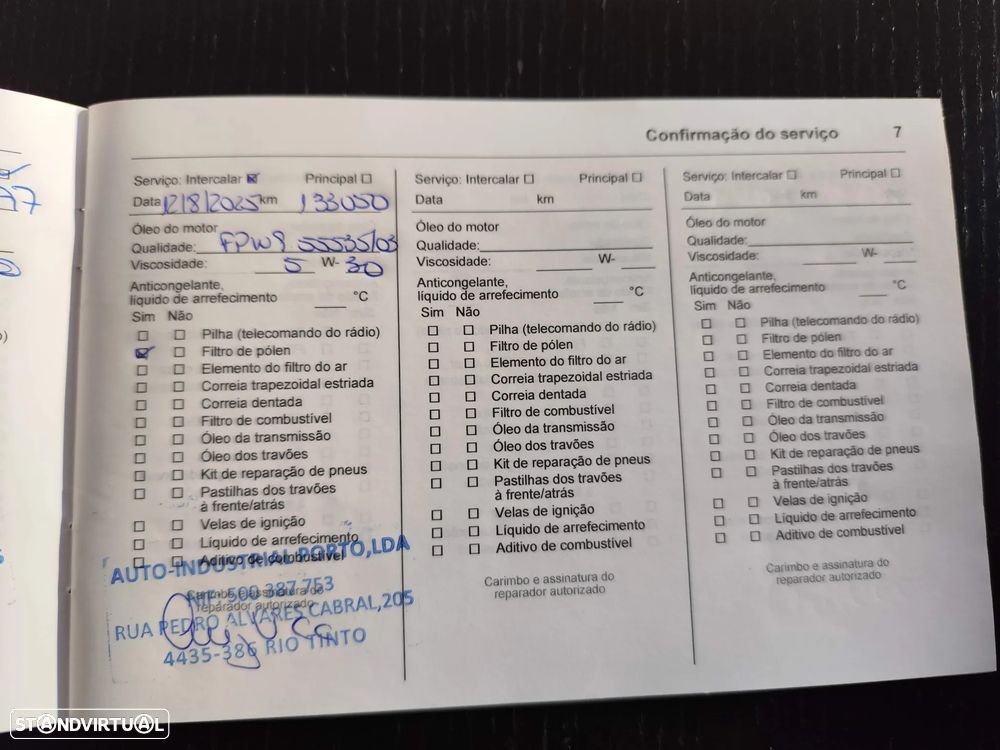 Confirmação do serviço 7
Serviço: Intercalar ☒ Principal ☐
Data 12/8/2025 km 133050
Óleo do motor
Qualidade:
Viscosidade: 5 W- 30
Anticongelante,
líquido de arrefecimento °C
Sim Não
☐ ☐ Pilha (telecomando do rádio)
☒ ☐ Filtro de pólen
☐ ☐ Elemento do filtro do ar
☐ ☐ Correia trapezoidal estriada
☐ ☐ Correia dentada
☐ ☐ Filtro de combustível
☐ ☐ Óleo da transmissão
☐ ☐ Óleo dos travões
☐ ☐ Kit de reparação de pneus
☐ ☐ Pastilhas dos travões
à frente/atrás
☐ ☐ Velas de ignição
☐ ☐ Líquido de arrefecimento
☐ ☐ Aditivo de combustível
Carimbo e assinatura do
reparador autorizado
AUTO-INDUSTRIAL PORTO,LDA
500 387 753
RUA PEDRO ALVARES CABRAL,205
4435-386 RIO TINTO
Serviço: Intercalar ☐ Principal ☐
Data km
Óleo do motor
Qualidade:
Viscosidade: W-
Anticongelante,
líquido de arrefecimento °C
Sim Não
☐ ☐ Pilha (telecomando do rádio)
☐ ☐ Filtro de pólen
☐ ☐ Elemento do filtro do ar
☐ ☐ Correia trapezoidal estriada
☐ ☐ Correia dentada
☐ ☐ Filtro de combustível
☐ ☐ Óleo da transmissão
☐ ☐ Óleo dos travões
☐ ☐ Kit de reparação de pneus
☐ ☐ Pastilhas dos travões
à frente/atrás
☐ ☐ Velas de ignição
☐ ☐ Líquido de arrefecimento
☐ ☐ Aditivo de combustível
Carimbo e assinatura do
reparador autorizado
Serviço: Intercalar ☐ Principal ☐
Data km
Óleo do motor
Qualidade:
Viscosidade: W-
Anticongelante,
líquido de arrefecimento °C
Sim Não
☐ ☐ Pilha (telecomando do rádio)
☐ ☐ Filtro de pólen
☐ ☐ Elemento do filtro do ar
☐ ☐ Correia trapezoidal estriada
☐ ☐ Correia dentada
☐ ☐ Filtro de combustível
☐ ☐ Óleo da transmissão
☐ ☐ Óleo dos travões
☐ ☐ Kit de reparação de pneus
☐ ☐ Pastilhas dos travões
à frente/atrás
☐ ☐ Velas de ignição
☐ ☐ Líquido de arrefecimento
☐ ☐ Aditivo de combustível
Carimbo e assinatura do
reparador autorizado
STANDVIRTUAL